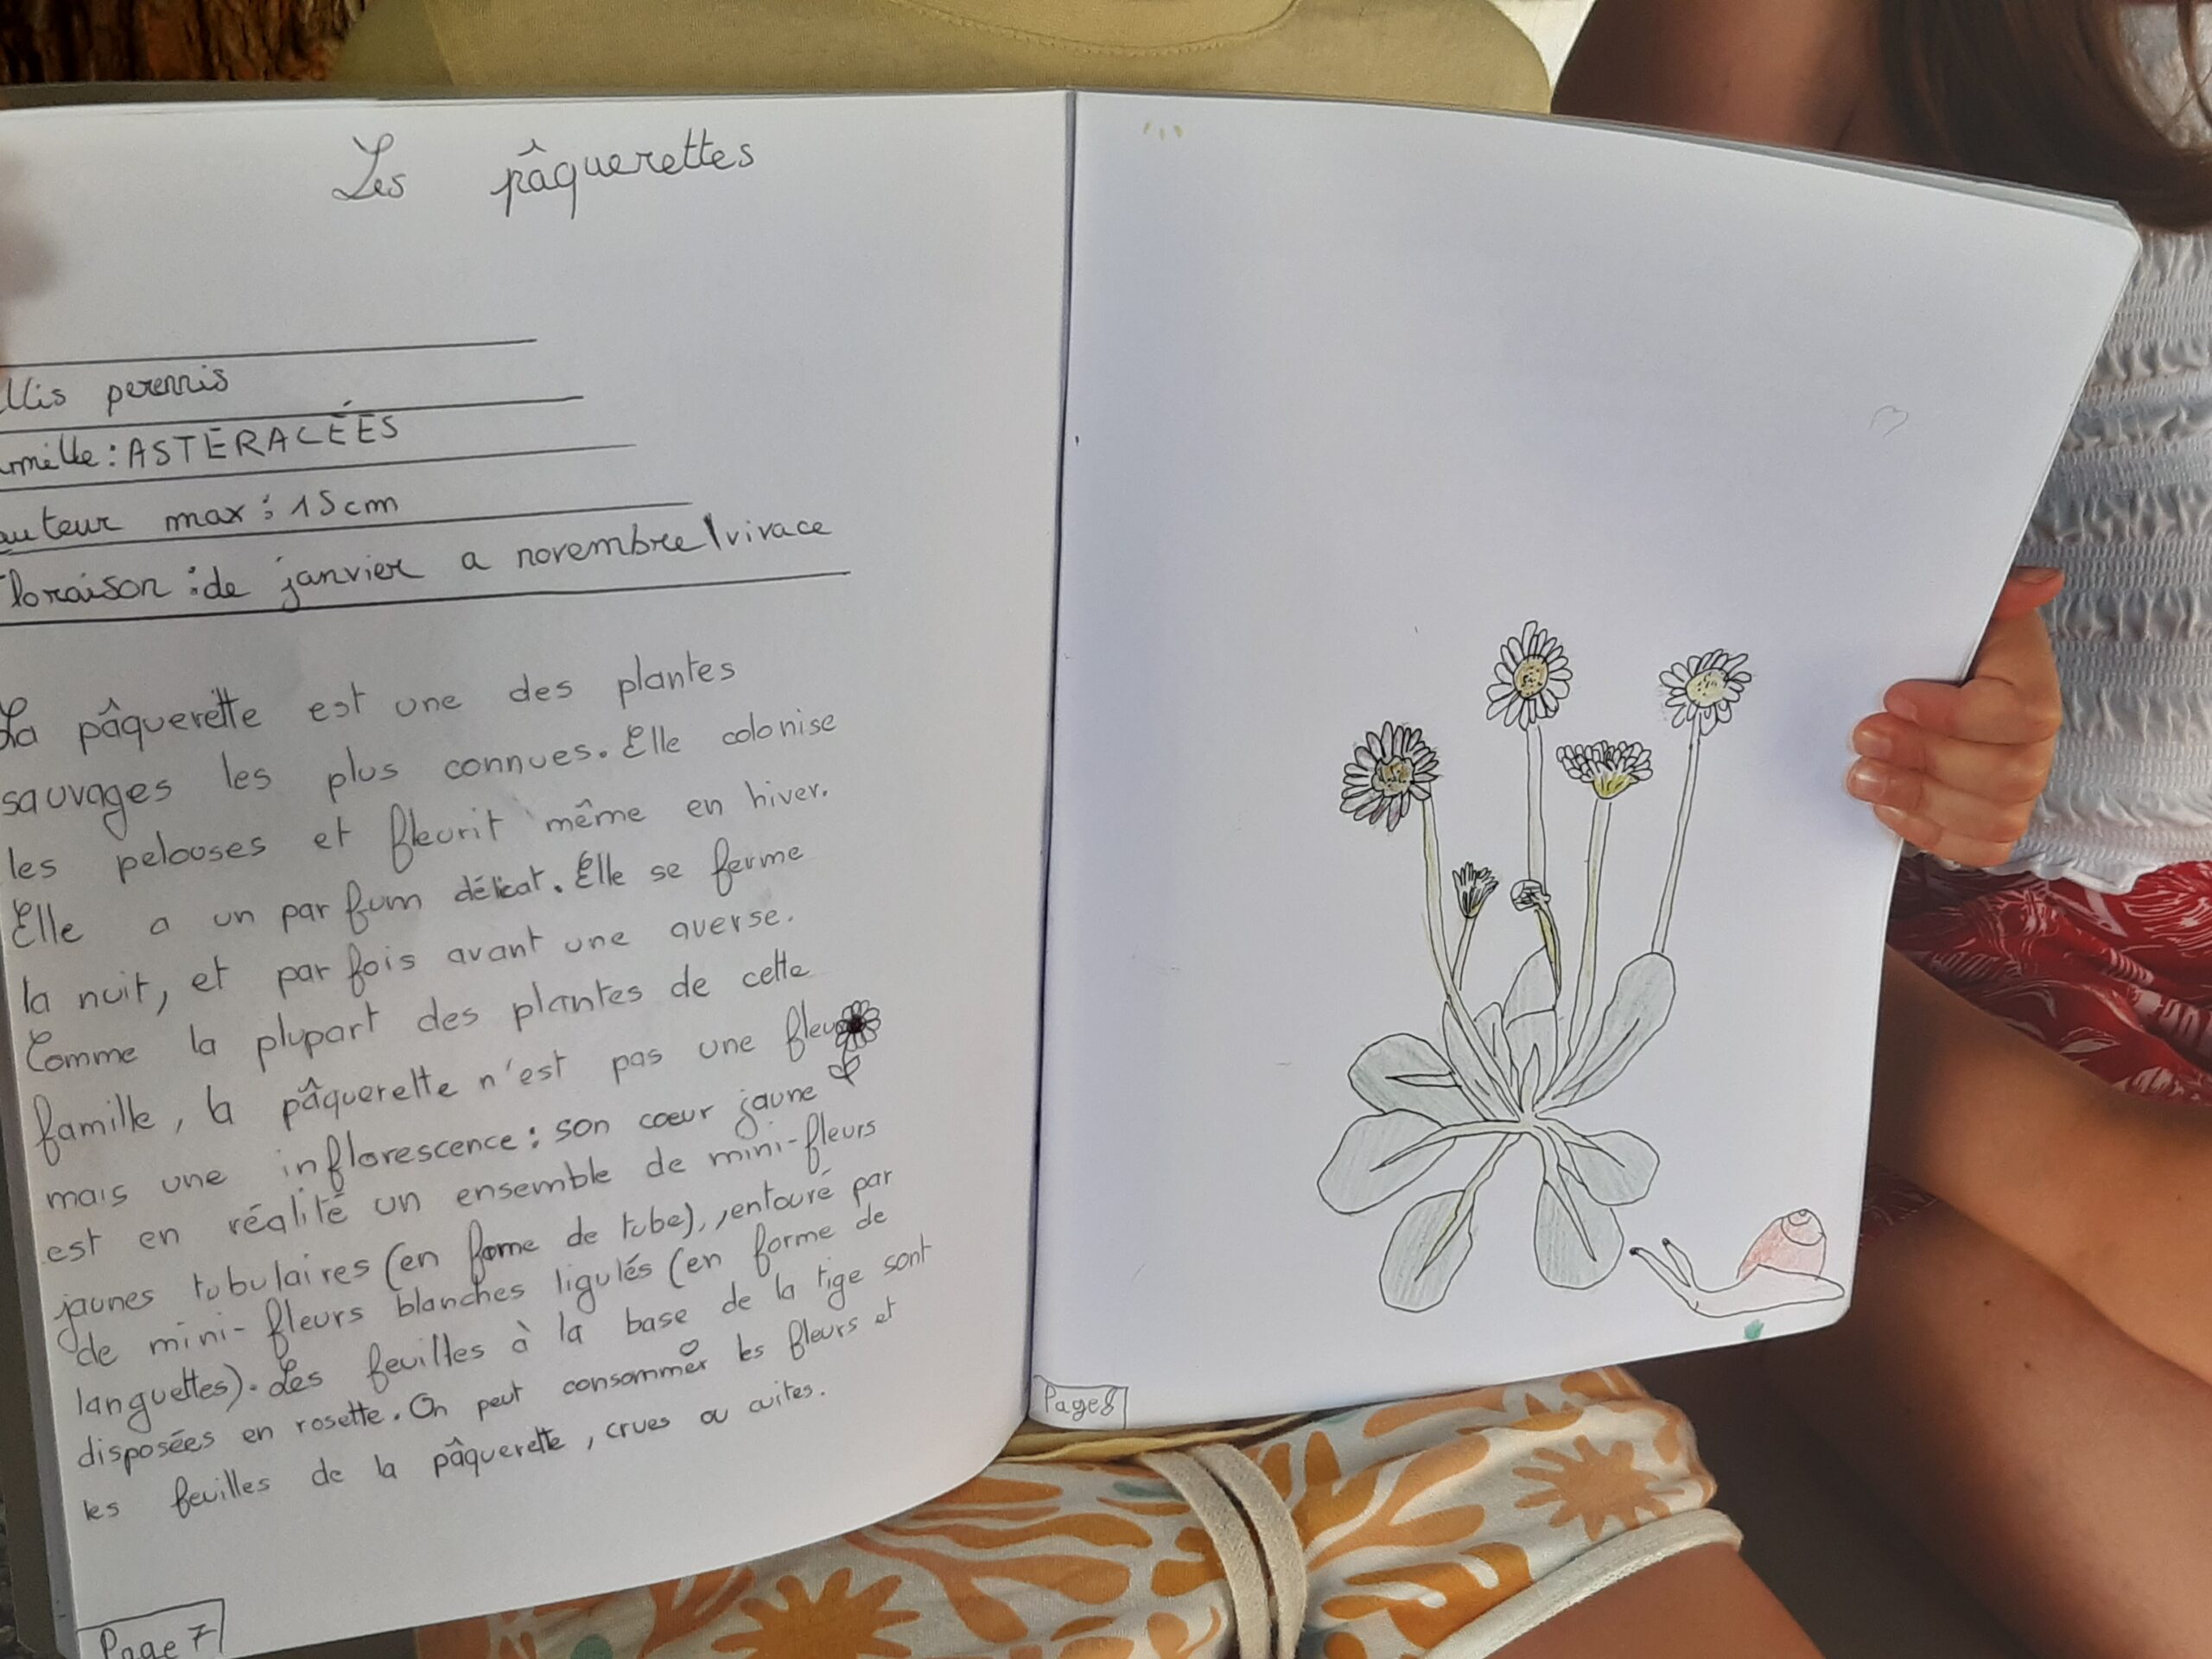 Les pâquerettes
llis perennis
mille : ASTÉRACÉES
auteur max : 15 cm
floraison : de janvier a novembre \ vivace
La pâquerette est une des plantes
sauvages les plus connues. Elle colonise
les pelouses et fleurit même en hiver.
Elle a un parfum délicat. Elle se ferme
la nuit, et parfois avant une averse.
Comme la plupart des plantes de cette
famille, la pâquerette n'est pas une fleur
mais une inflorescence : son cœur jaune
est en réalité un ensemble de mini-fleurs
jaunes tubulaires (en forme de tube), , entouré par
de mini-fleurs blanches ligulés (en forme de
languettes). Les feuilles à la base de la tige sont
disposées en rosette. On peut consommer les fleurs et
les feuilles de la pâquerette, crues ou cuites.
Page 7
Page 8